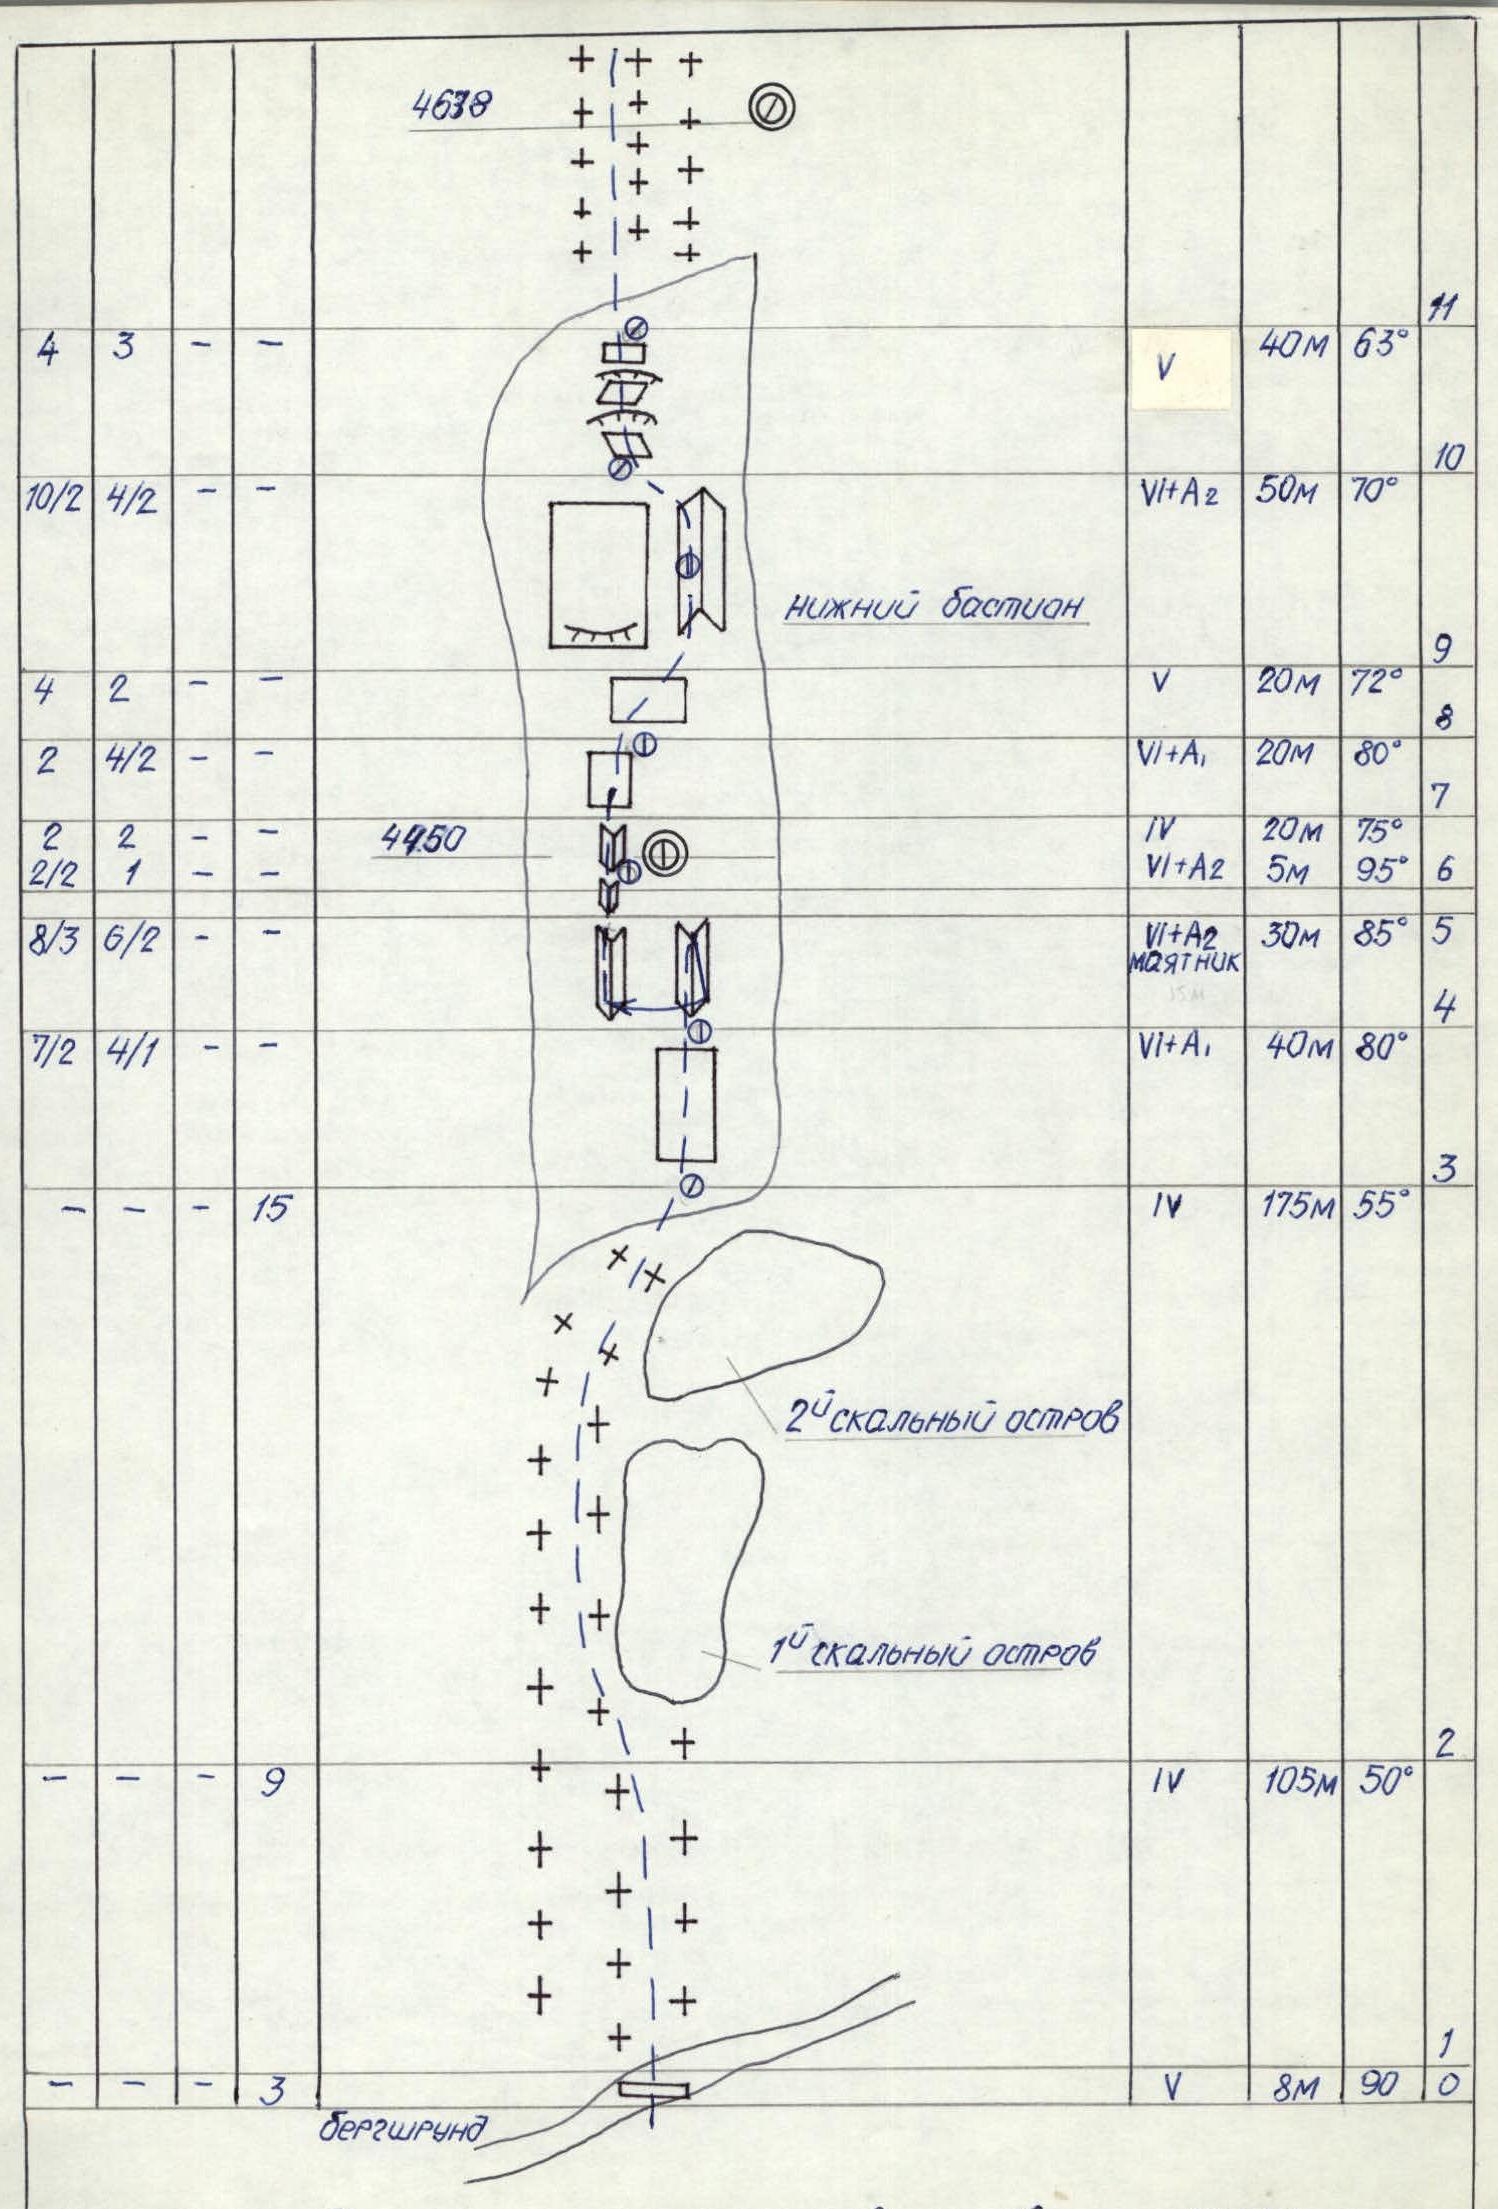 4638
11
4 3 - - V 40м 63°
10
10/2 4/2 - - VI+A2 50м 70°
нижний бастион
9
4 2 - - V 20м 72°
8
2 4/2 - - VI+A1 20м 80°
7
2 2 - - 4450 IV 20м 75°
2/2 1 - - VI+A2 5м 95° 6
8/3 6/2 - - VI+A2 30м 85° 5
маятник
15м
4
7/2 4/1 - - VI+A1 40м 80°
3
- - - 15 IV 175м 55°
2й скальный остров
1й скальный остров
2
- - - 9 IV 105м 50°
1
- - - 3 V 8м 90 0
бергшрунд